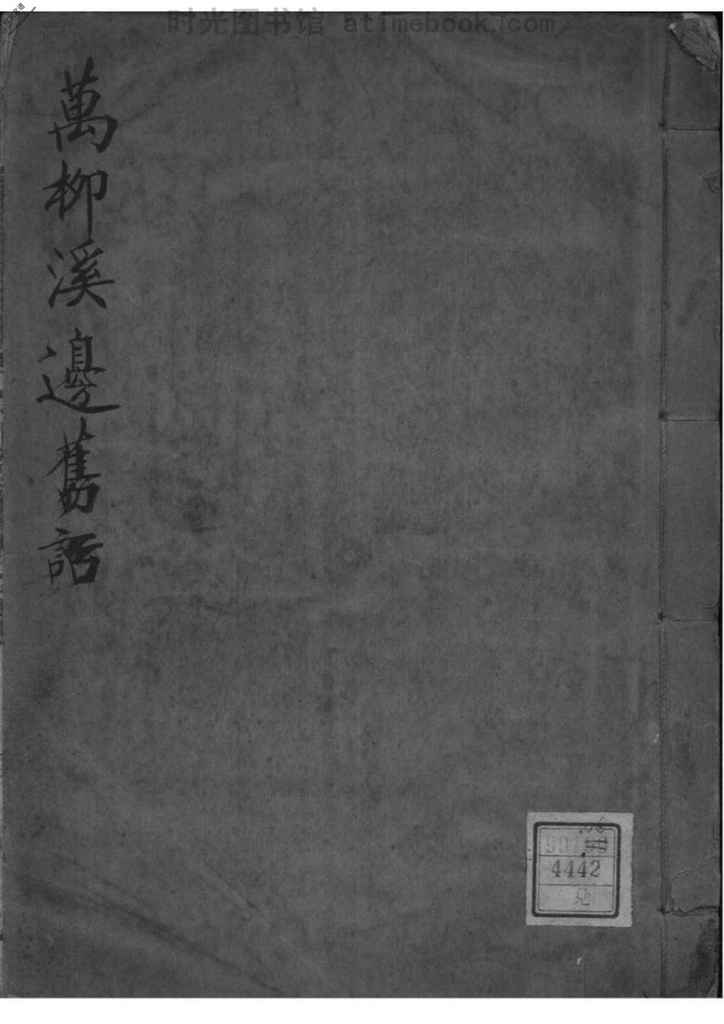 时光图书馆 atimebook.com
萬柳溪邊舊話
4442